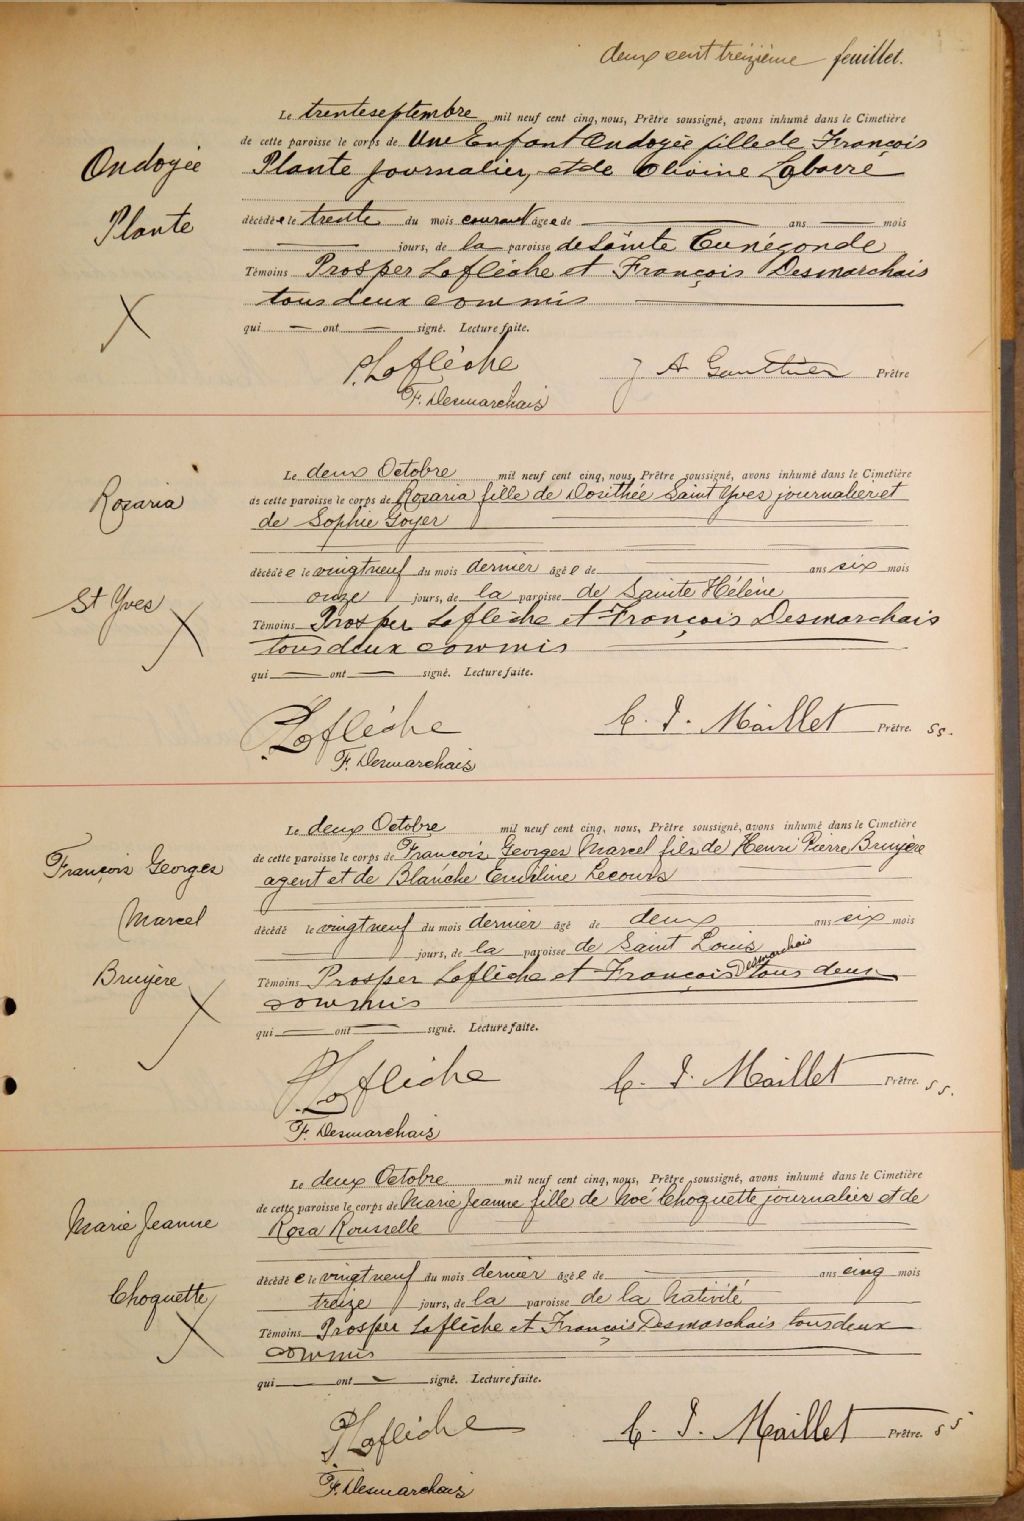 deux cent treizième feuillet.
Le trente septembre mil neuf cent cinq, nous, Prêtre soussigné, avons inhumé dans le Cimetière
de cette paroisse le corps de Une Enfant Ondoyée fille de François
Ondoyée
Plante journalier, et de Olivine Labarré
Plante
décédée le trente du mois courant âgée de ans mois
jours, de la paroisse de Sainte Cunégonde
Témoins Prosper Laflèche et François Desmarchais
tous deux commis
X
qui ont signé. Lecture faite.
P. Laflèche J A Gauthier Prêtre
F. Desmarchais
Le deux Octobre mil neuf cent cinq, nous, Prêtre soussigné, avons inhumé dans le Cimetière
Rosaria
de cette paroisse le corps de Rosaria fille de Dosithée Saint Yves journalier et
de Sophie Goyer
décédée le vingt neuf du mois dernier âgée de ans six mois
onze jours, de la paroisse de Sainte Hélène
St Yves
Témoins Prosper Laflèche et François Desmarchais
X
tous deux commis
qui ont signé. Lecture faite.
P. Laflèche C. I. Maillet Prêtre. ss.
F. Desmarchais
Le deux Octobre mil neuf cent cinq, nous, Prêtre soussigné, avons inhumé dans le Cimetière
de cette paroisse le corps de François Georges Marcel fils de Henri Pierre Bruyère
François Georges
agent et de Blanche Emiline Lecours
Marcel
décédé le vingt neuf du mois dernier âgé de deux ans six mois
jours, de la paroisse de Saint Louis
Desmarchais
Témoins Prosper Laflèche et François tous deux
Bruyère
commis
X
qui ont signé. Lecture faite.
P. Laflèche C. I. Maillet Prêtre. ss.
F. Desmarchais
Le deux Octobre mil neuf cent cinq, nous, Prêtre soussigné, avons inhumé dans le Cimetière
de cette paroisse le corps de Marie Jeanne fille de Noé Choquette journalier et de
Marie Jeanne
Rosa Rousselle
décédée le vingt neuf du mois dernier âgée de ans cinq mois
Choquette
treize jours, de la paroisse de la Nativité
Témoins Prosper Laflèche et François Desmarchais tous deux
X
commis
qui ont signé. Lecture faite.
P Laflèche C. I. Maillet Prêtre. ss
F. Desmarchais